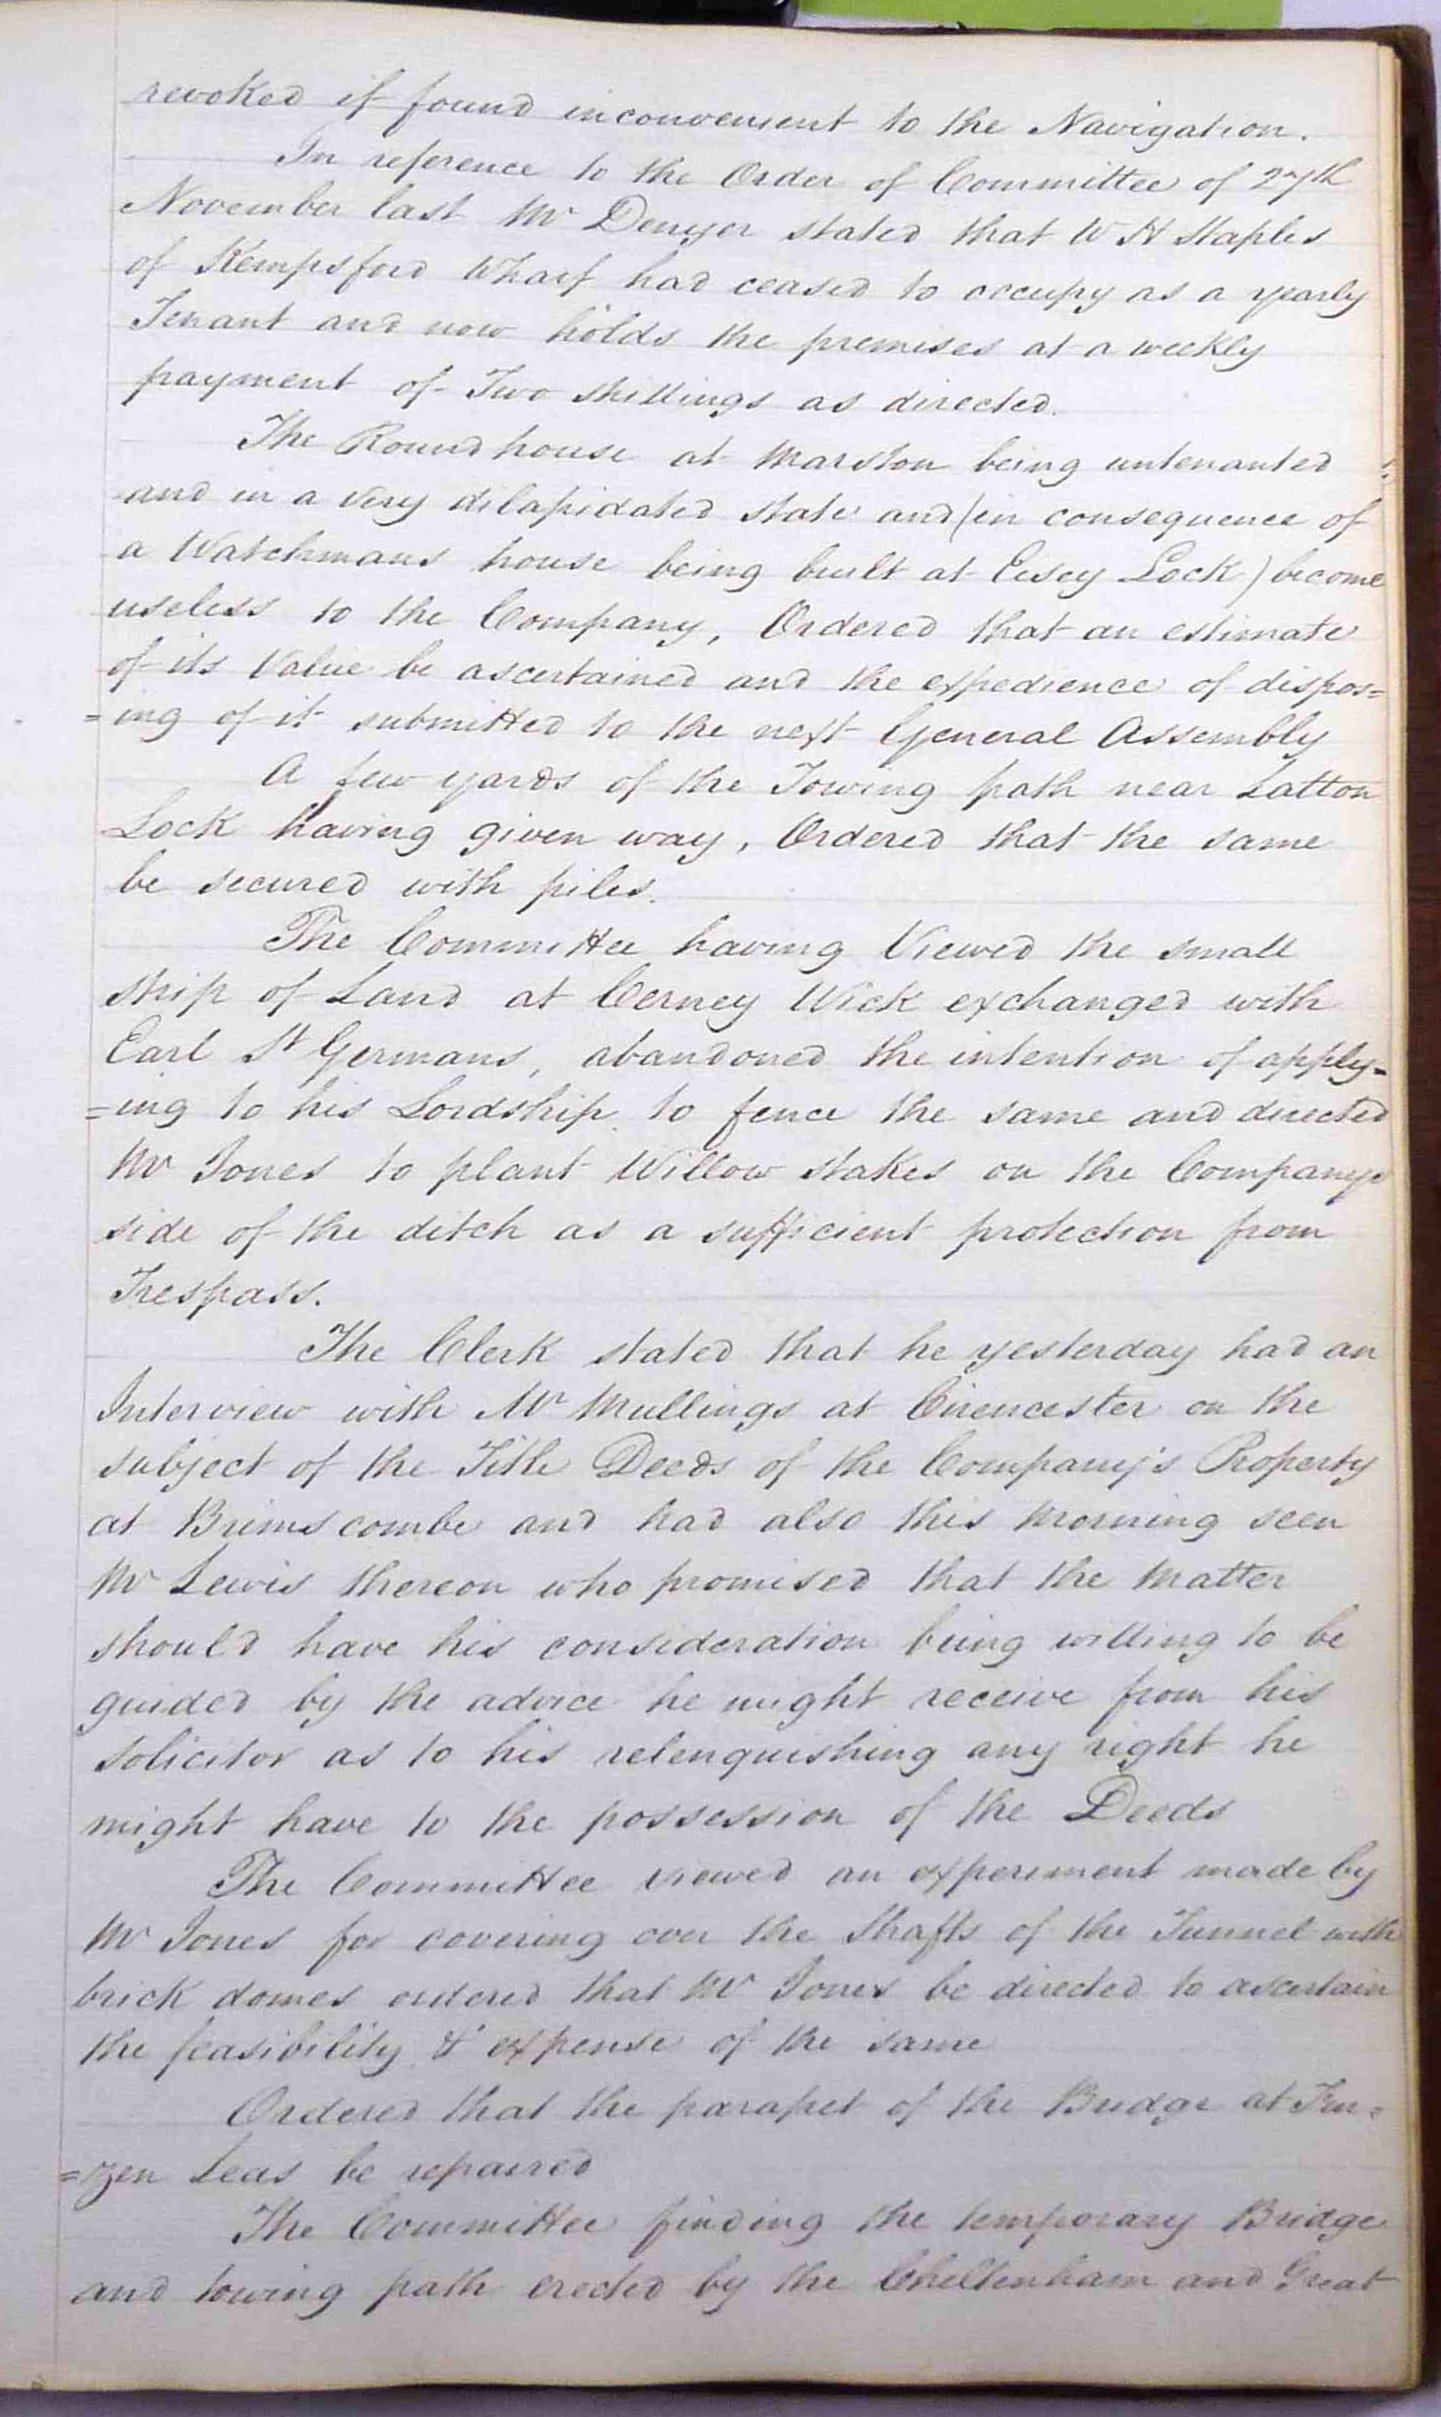 revoked if found inconvenient to the Navigation.
In reference to the Order of Committee of 27th
November last Mr Denyer stated that W H Staples
of Kempsford Wharf had ceased to occupy as a yearly
Tenant and now holds the premises at a weekly
payment of Two shillings as directed.
The Roundhouse at Marston being untenanted
and in a very dilapidated state and (in consequence of
a Watchmans house being built at Eisey Lock) become
useless to the Company, Ordered that an estimate
of its Value be ascertained and the expedience of dispos=
=ing of it submitted to the next General Assembly
A few yards of the Towing path near Latton
Lock having given way, Ordered that the same
be secured with piles.
The Committee having Viewed the small
strip of Land at Cerney Wick exchanged with
Earl St Germans, abandoned the intention of apply=
=ing to his Lordship to fence the same and directed
Mr Jones to plant Willow stakes on the Companys
side of the ditch as a sufficient protection from
Trespass.
The Clerk stated that he yesterday had an
Interview with Mr Mullings at Cirencester on the
subject of the Title Deeds of the Company's Property
at Brimscombe and had also this Morning seen
Mr Lewis thereon who promised that the Matter
should have his consideration being willing to be
guided by the advice he might receive from his
solicitor as to his relenquishing any right he
might have to the possession of the Deeds
The Committee viewed an experiment made by
Mr Jones for covering over the Shafts of the Tunnel with
brick domes ordered that Mr Jones be directed to ascertain
the feasibility & expense of the same
Ordered that the parapet of the Bridge at Fur=
=zen Leas be repaired
The Committee finding the temporary Bridge
and towing path erected by the Cheltenham and Great